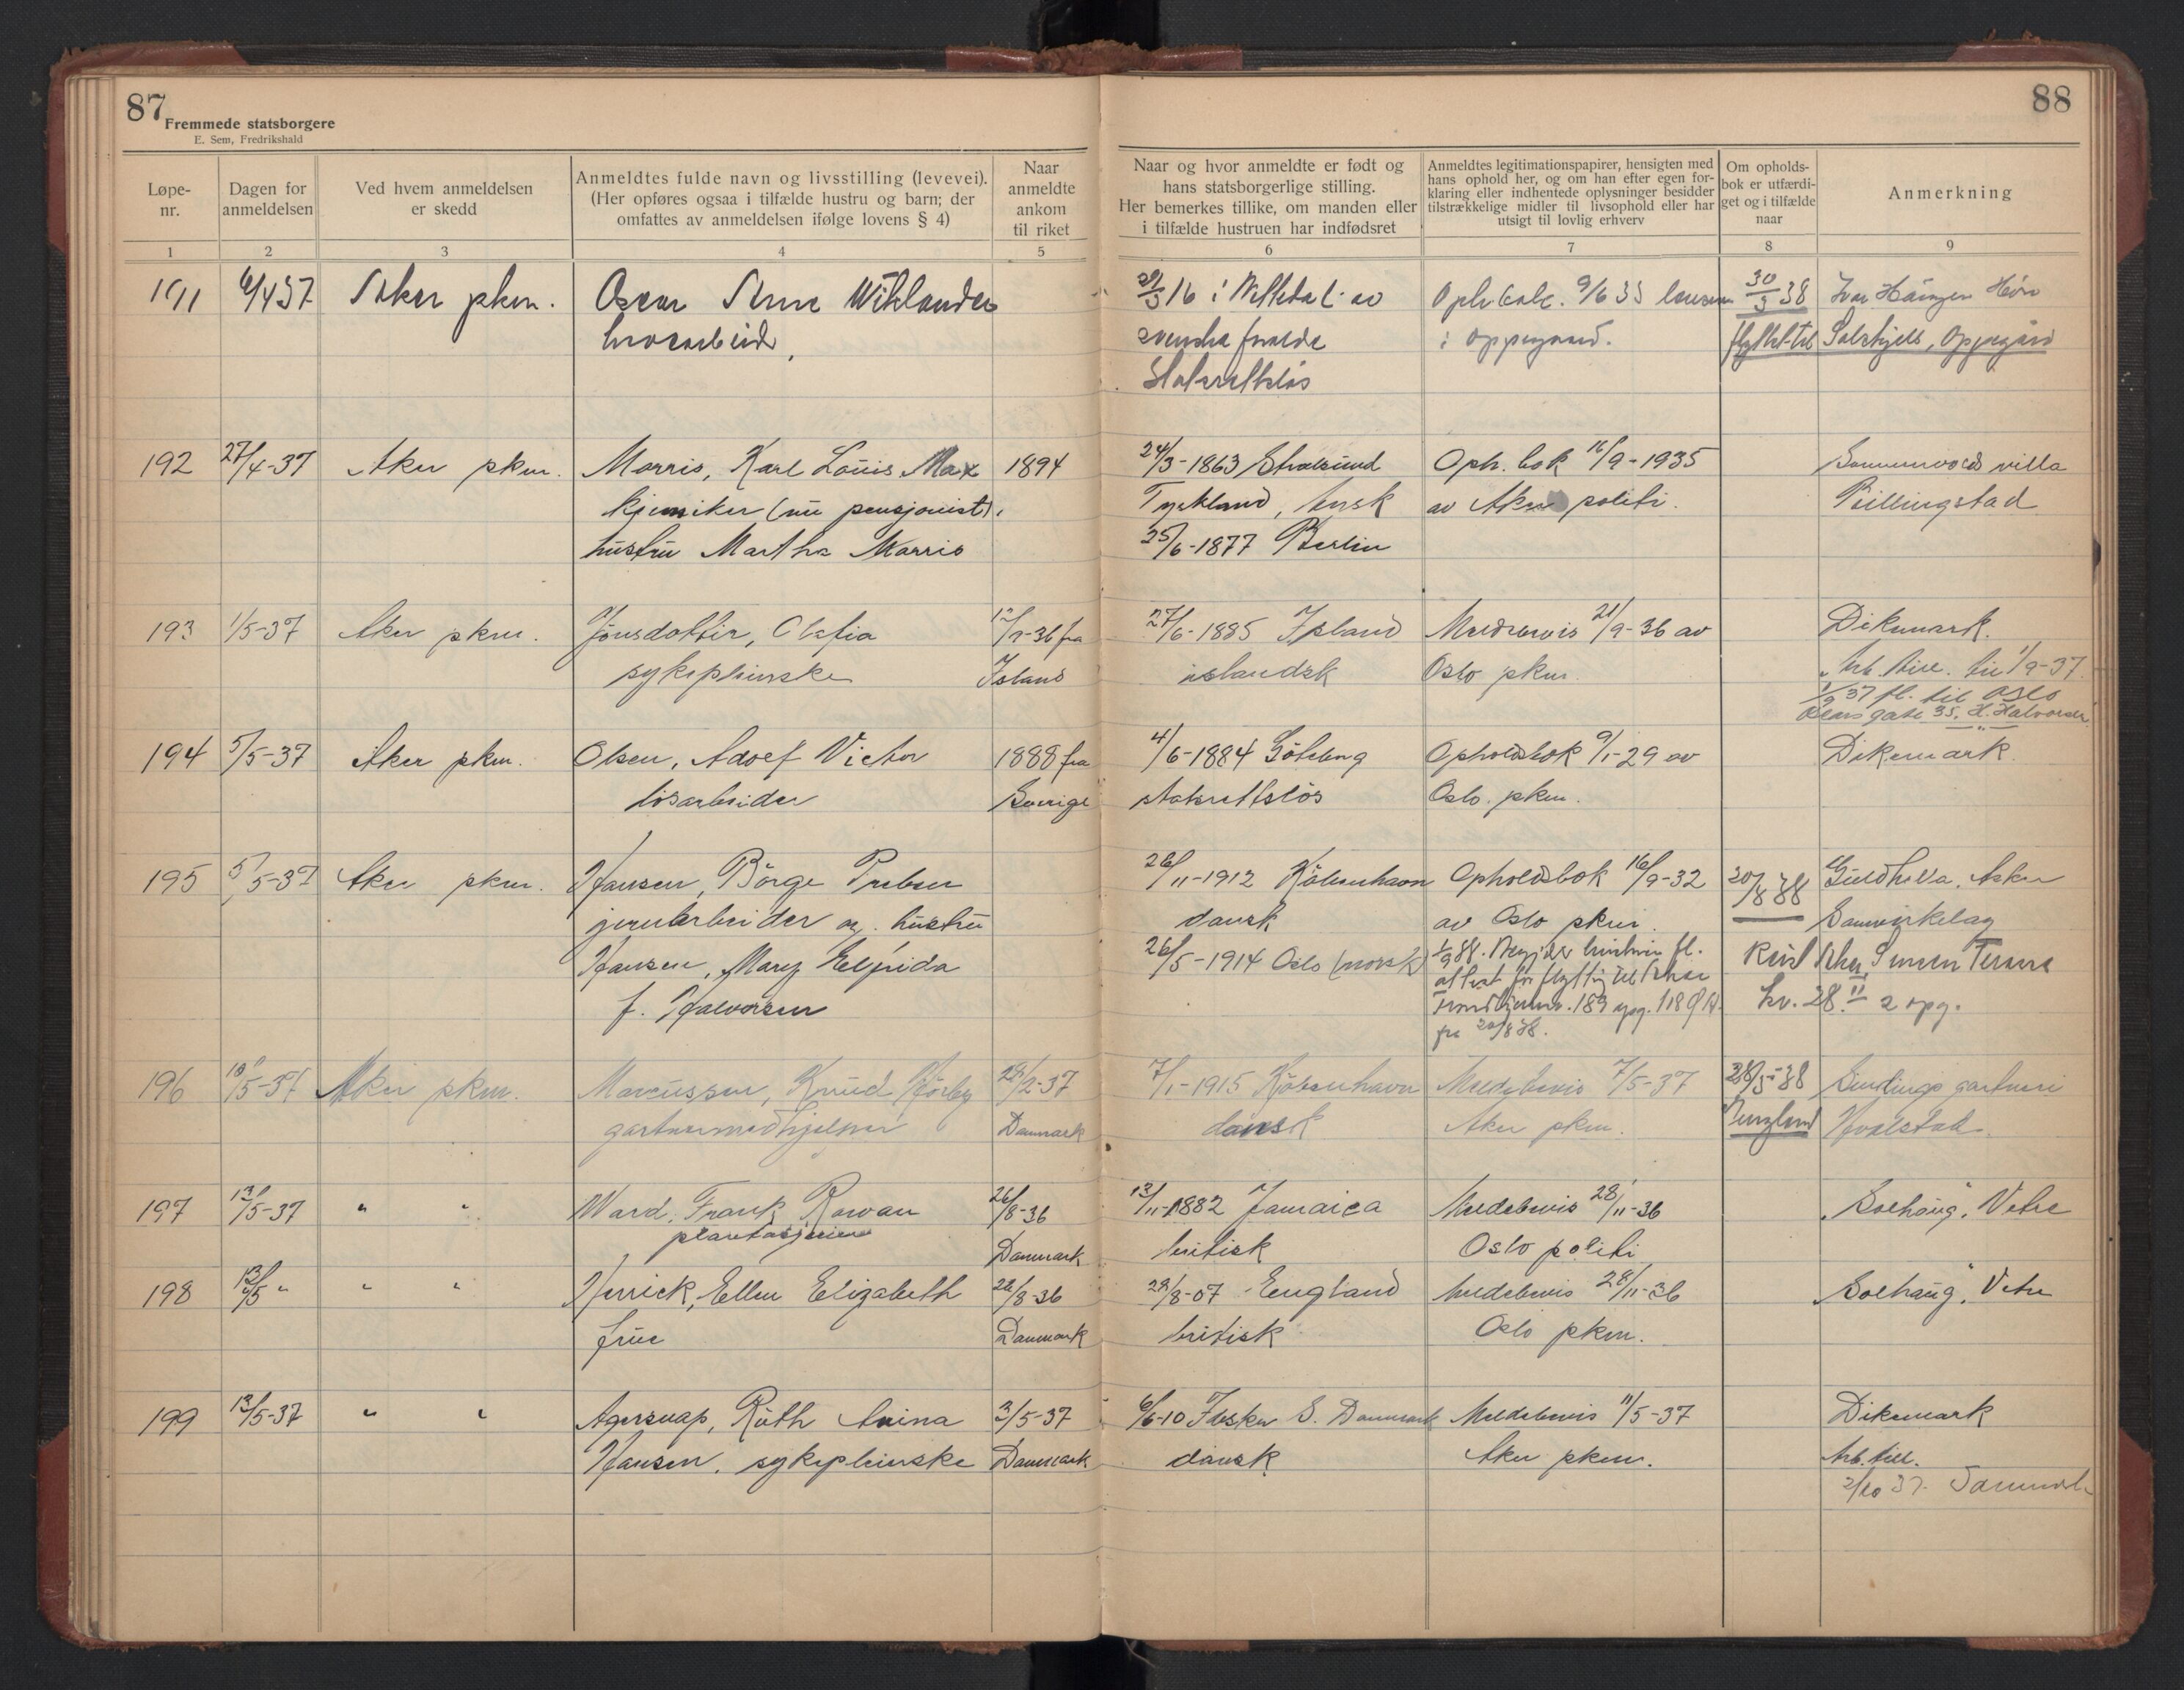 87
Fremmede statsborgere
E. Sem, Fredrikshald
88
Løpe-
nr.
Dagen for
anmeldelsen
Ved hvem anmeldelsen
er skedd
Anmeldtes fulde navn og livsstilling (levevei).
(Her opføres ogsaa i tilfælde hustru og barn; der
omfattes av anmeldelsen ifølge lovens § 4)
Naar
anmeldte
ankom
til riket
Naar og hvor anmeldte er født og
hans statsborgerlige stilling.
Her bemerkes tillike, om manden eller
i tilfælde hustruen har indfødsret
Anmeldtes legitimationspapirer, hensigten med
hans ophold her, og om han efter egen for-
klaring eller indhentede oplysninger besidder
tilstrækkelige midler til livsophold eller har
utsigt til lovlig erhverv
Om opholds-
bok er utfærdi-
get og i tilfælde
naar
Anmerkning
1 2 3 4 5 6 7 8 9
191 6/4 37 Asker pkm. Oscar Arne Wihlander 16 i av Oph bok. 9/6 35 30/3 38 Ivar
svenske i oppegaard. flyttet til Oppegård
192 27/4-37 Aker pkm. Morris, Karl Louis Max 1894 24/3-1863 Stralsund Oph. bok 16/9-1935 villa
kjemiker (nu pensjonist). Tyskland, tysk av Aker politi. Billingstad
hustru Martha Morris 25/6-1877 Berlin
193 1/5-37 Aker pkm. Jonsdottir, Olafia 12/9-36 fra 27/6-1885 Island Meldebevis 21/9-36 av Dikemark.
sykepleierske Island islandsk Oslo pkm. Arb. till. til 1/9-37.
1/9 37 fl. til Oslo
gate 35, H. Halvorsen
194 5/5-37 Aker pkm. Olsen, Adolf Victor 1888 fra 4/6-1884 Göteborg Opholdsbok 9/1-29 av Dikemark.
løsarbeider Sverige statsrettsløs Oslo. pkm.
195 5/5-37 Aker pkm. Hansen, Börge Preben 26/11-1912 København Opholdsbok 16/9-32 20/8 38 Guldhella, Asker
jernarbeider og hustru dansk av Oslo pkm. Samvirkelag
Hansen, Mary Elfrida 26/5-1914 Oslo (norsk)
f. Halvorsen fra 20/8 38.
196 10/5-37 Aker pkm. Marcussen, Knud Hörby 28/2-37 7/1-1915 København Meldebevis 7/5-37 28/5-38 gartneri
gartnermedhjelper Danmark dansk Aker pkm. Hvalstad.
197 13/5-37 " " Ward, Frank Rowan 26/8-36 13/11-1882 Jamaica Meldebevis 28/11-36 "Solhaug", Vetre
Danmark britisk Oslo politi
198 13/5 " " " Herrick, Ellen Elizabeth 26/8-36 28/8-07 England Meldebevis 28/11-36 "Solhaug", Vetre
frue Danmark britisk Oslo pkm.
199 13/5-37 " " Agersnap, Ruth Anina 3/5-37 6/6-10 S. Danmark Meldebevis 11/5-37 Dikemark
Hansen, sykepleierske Danmark dansk Aker pkm. Arb. till.
2/10 37. Danmark